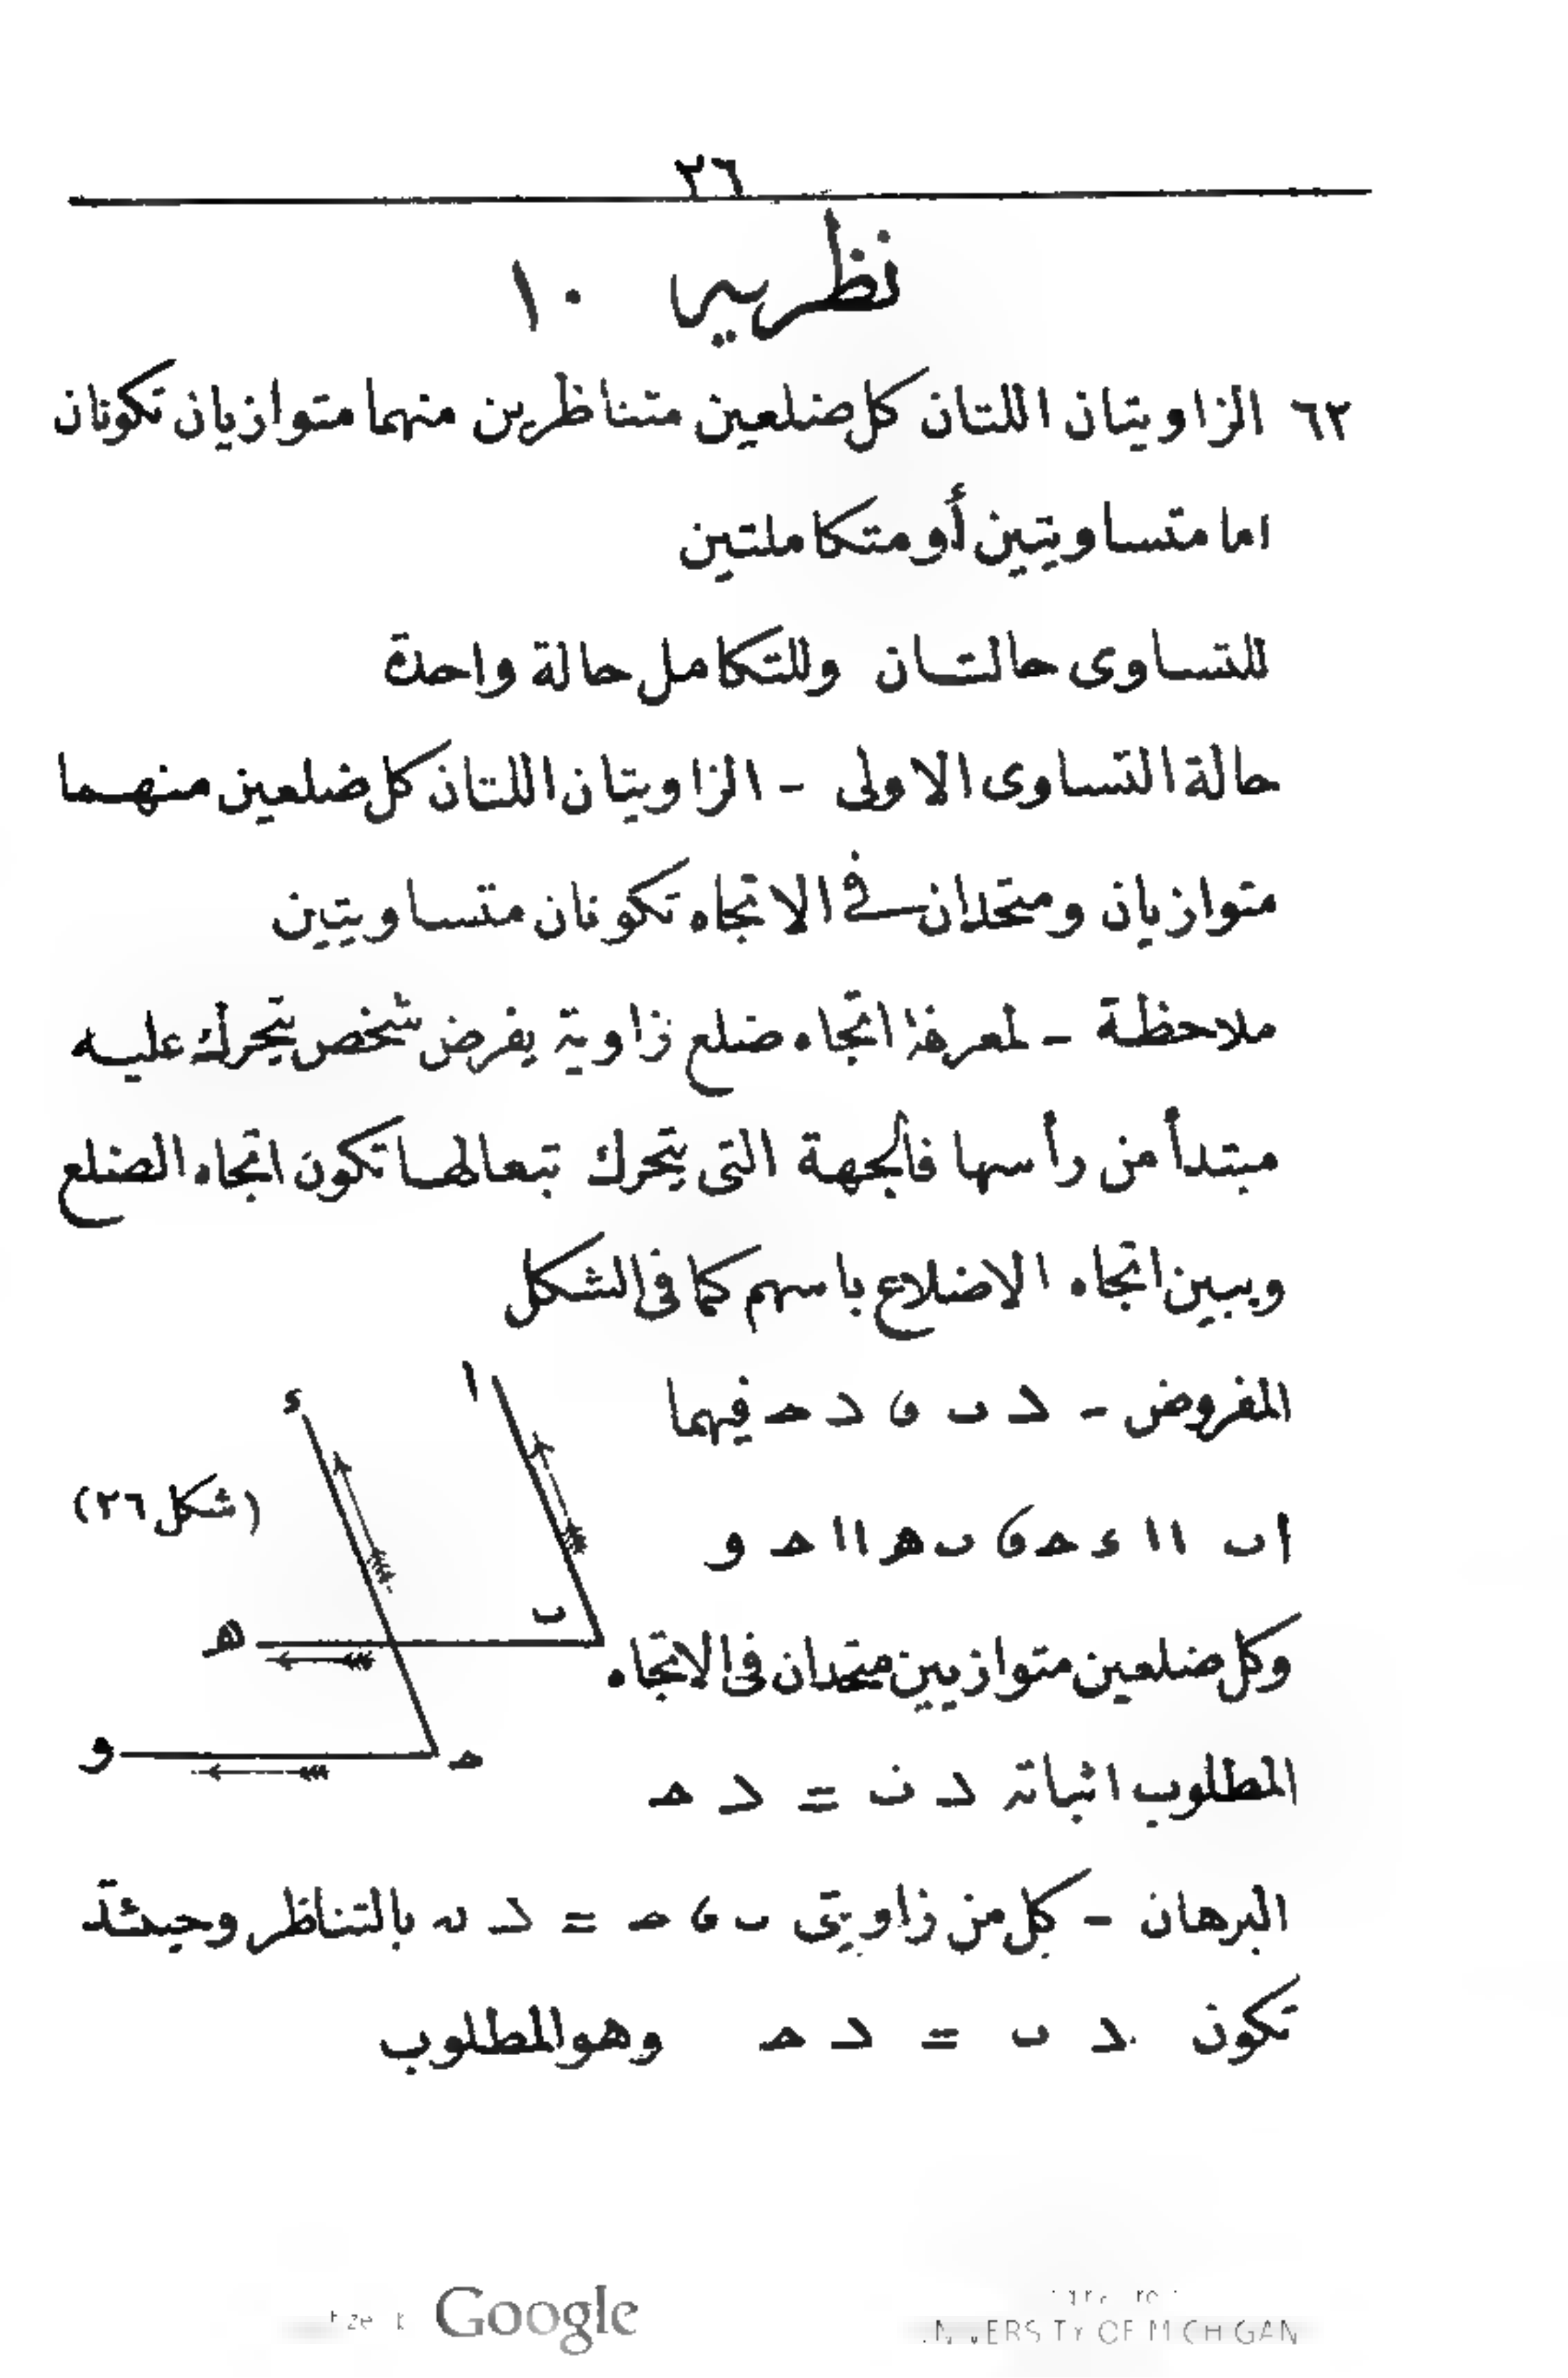 ٢٦
نظرية ١٠
٦٢ الزاويتان اللتان كل ضلعين متناظرين منهما متوازيان تكونان
اما متساويتين أو متكاملتين
للتساوى حالتان وللتكامل حالة واحدة
حالة التساوى الاولى - الزاويتان اللتان كل ضلعين منهما
متوازيان ومتحدان في الاتجاه تكونان متساويتين
ملاحظة - لمعرفة اتجاه ضلع زاوية يفرض شخص يتحرك عليه
مبتدأ من رأسها فالجهة التى يتحرك تبعا لها تكون اتجاه الضلع
ويبين اتجاه الاضلاع باسهم كما فى الشكل
المفروض - د ب و د حـ فيهما
ا
ء
(شكل ٢٦)
اب // ء حـ و ب هـ // حـ و
ب
هـ
وكل ضلعين متوازيين متحدان فى الاتجاه
و
حـ
المطلوب اثباته د ب = د حـ
البرهان - كل من زاويتى ب و حـ = د ن بالتناظر وحينئذ
تكون د ب = د حـ وهو المطلوب
Google
UNIVERSITY OF MICHIGAN